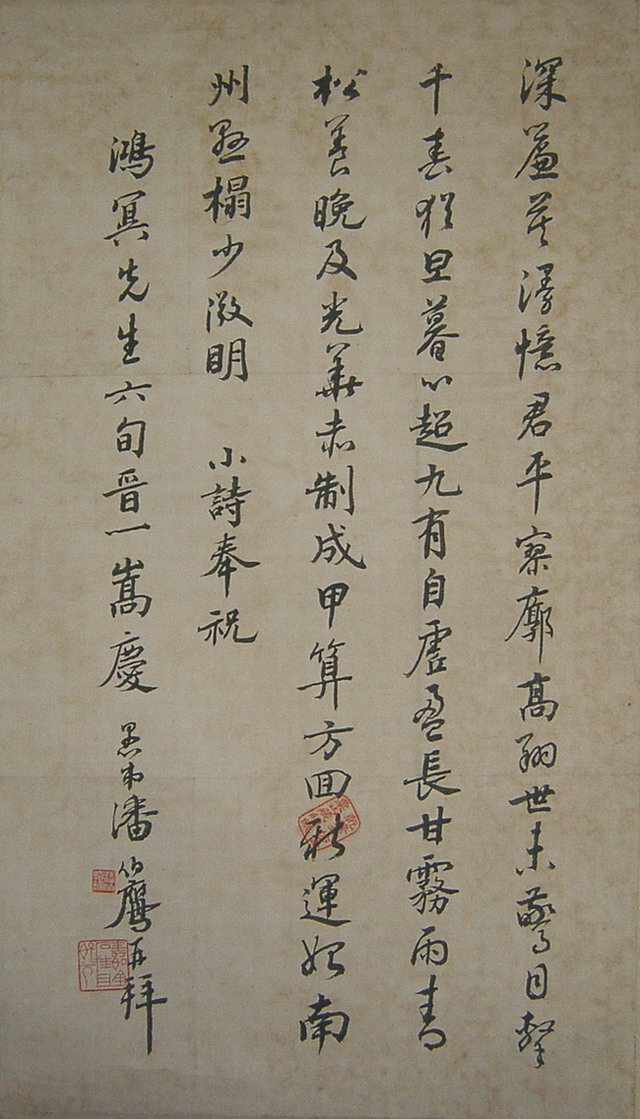 深簾莫漫憶君平寥廓高翔世未驚目擊
千春猶旦暮心超九有自虛盈長甘霧雨青
松養晚及光華赤制成甲算方回運始南
州懸榻少微明 小詩奉祝
鴻冥先生六旬晉一嵩慶 愚弟潘伯鷹再拜